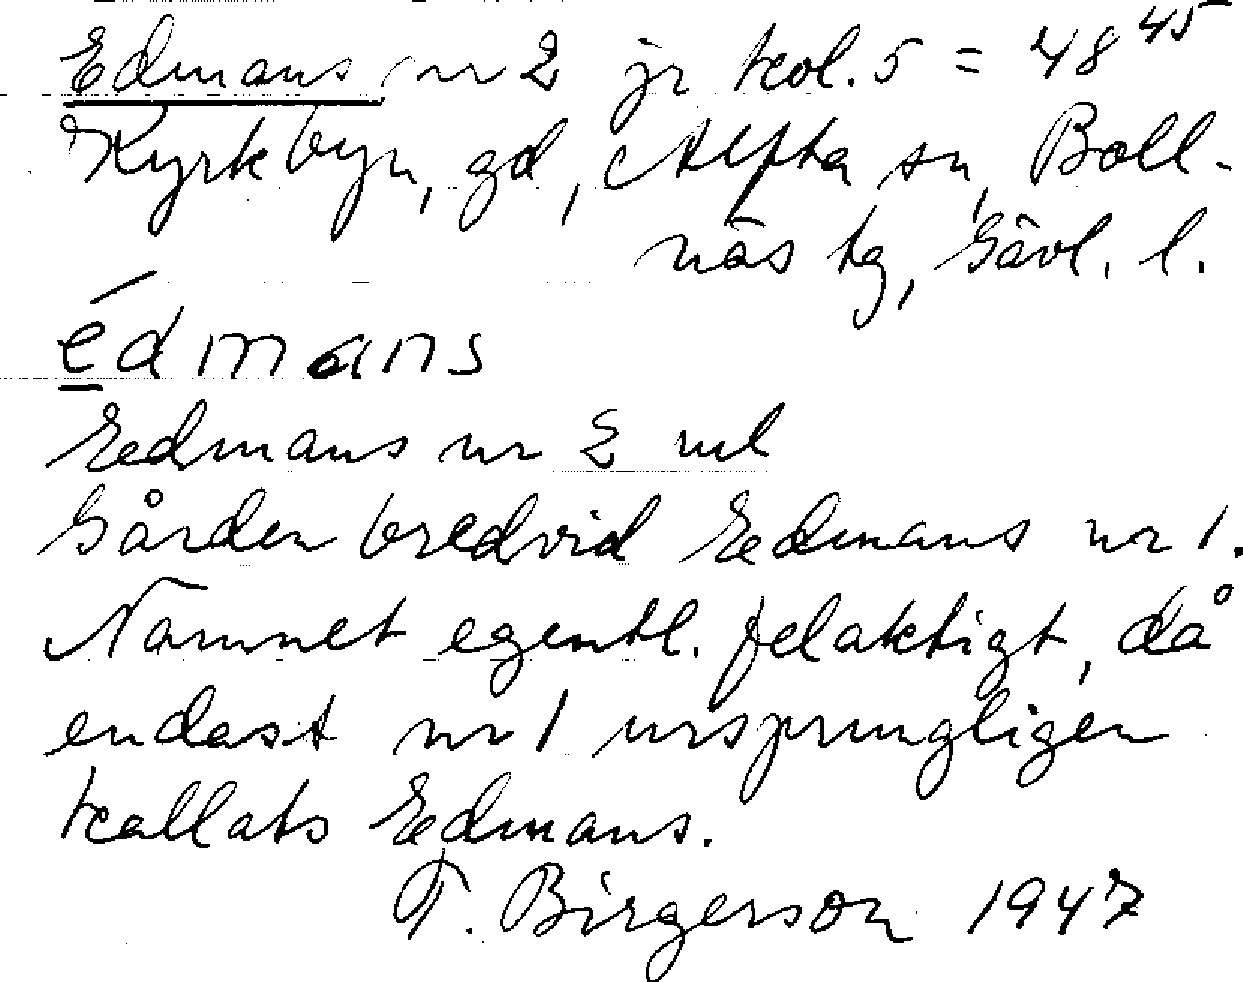 Edmans nr 2 jr kol. 5 = 48 45
Kyrkbyn, gd, Alfta sn, Boll-
näs tg, Gävl. l.
édmans
Edmans nr 2 ml
Gården bredvid Edmans nr 1.
Namnet egentl. felaktigt, då
endast nr 1 ursprungligen
kallats Edmans.
T. Birgerson 1947